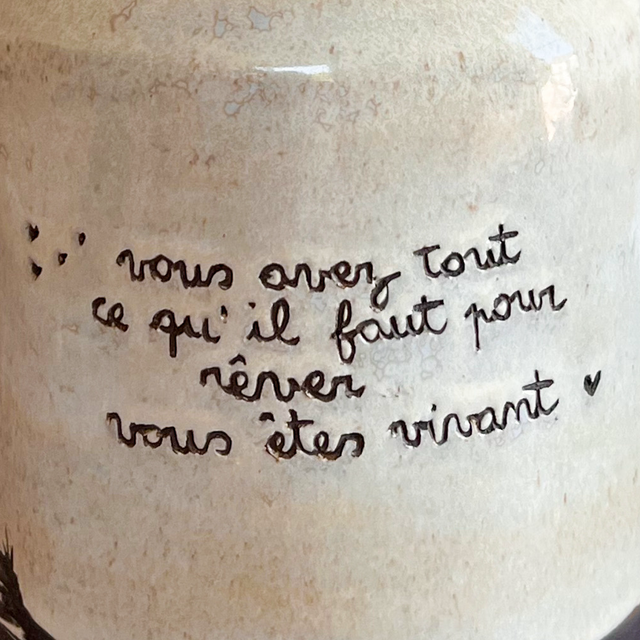 vous avez tout
ce qu'il faut pour
rêver
vous êtes vivant